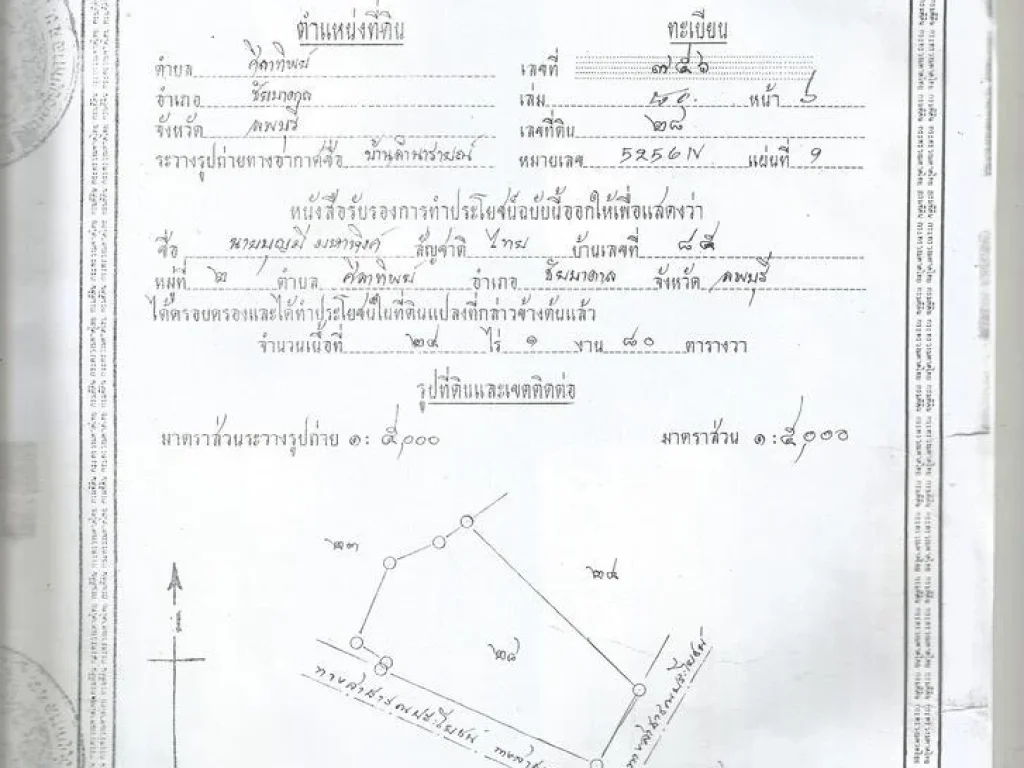 ตำแหน่งที่ดิน ทะเบียน
ตำบล ศิลาทิพย์ เลขที่ ๗๕๖
อำเภอ ชัยบาดาล เล่ม หน้า ๖
จังหวัด ลพบุรี เลขที่ดิน ๒๘
ระวางรูปถ่ายทางอากาศชื่อ บ้านลำนารายณ์ หมายเลข 5256 IV แผ่นที่ 9
หนังสือรับรองการทำประโยชน์ฉบับนี้ออกให้เพื่อแสดงว่า
ชื่อ นายบุญมี สัญชาติ ไทย บ้านเลขที่ ๘๕
หมู่ที่ ๒ ตำบล ศิลาทิพย์ อำเภอ ชัยบาดาล จังหวัด ลพบุรี
ได้ครอบครองและได้ทำประโยชน์ในที่ดินแปลงที่กล่าวข้างต้นแล้ว
จำนวนเนื้อที่ ๒๔ ไร่ ๑ งาน ๘๐ ตารางวา
รูปที่ดินและเขตติดต่อ
มาตราส่วนระวางรูปถ่าย ๑: ๕,๐๐๐ มาตราส่วน ๑:๕,๐๐๐
๒๓
๒๔
๒๘
ทางสาธารณประโยชน์
ทางสาธารณประโยชน์